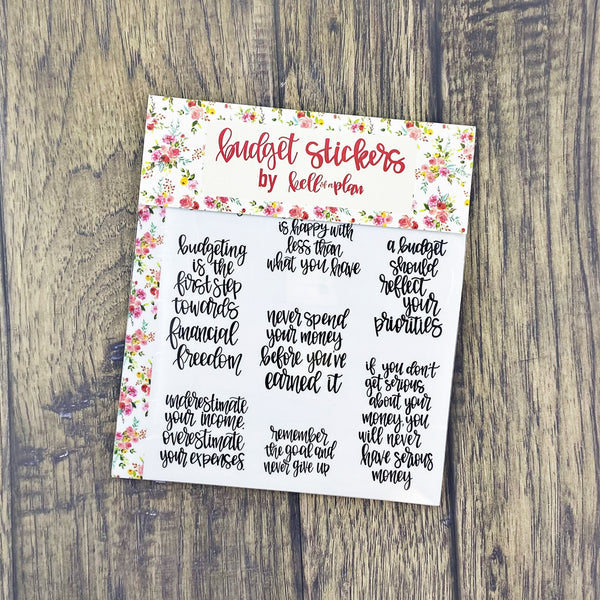 budget stickers
by kell of a plan
budgeting
is the
first step
towards
financial
freedom
is happy with
less than
what you have
a budget
should
reflect
your
priorities
never spend
your money
before you've
earned it
underestimate
your income.
overestimate
your expenses.
remember
the goal and
never give up
if you don't
get serious
about your
money, you
will never
have serious
money